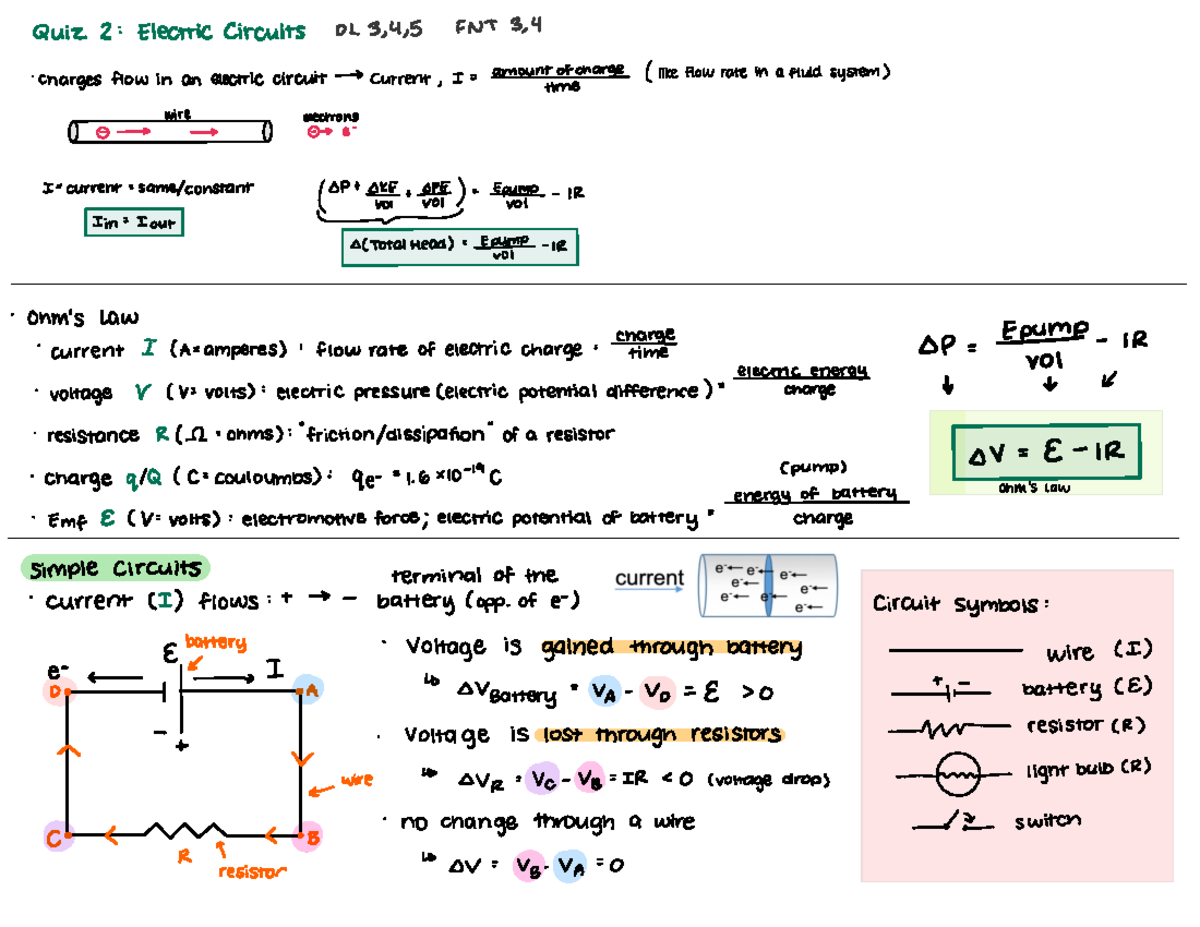 Quiz 2: Electric Circuits DL 3,4,5 FNT 3,4
· charges flow in an electric circuit → current, I = amount of charge / time (like flow rate in a fluid system)
wire
electrons
⊖ → →
⊖→ e⁻
I = current = same/constant
(ΔP + ΔKE/vol + ΔPE/vol) = Epump/vol - IR
Iin = Iout
Δ(Total Head) = Epump/vol - IR
· Ohm's Law
· current I (A=amperes) : flow rate of electric charge = charge/time
· voltage V (V= volts) : electric pressure (electric potential difference) = electric energy/charge
· resistance R (Ω = ohms) : "friction/dissipation" of a resistor
· charge q/Q (C= couloumbs) : qe- = 1.6 ×10⁻¹⁹ C
· Emf ε (V= volts) : electromotive force; electric potential of battery = (pump) energy of battery / charge
ΔP = Epump/vol - IR
↓ ↓ ↙
ΔV = ε - IR
Ohm's Law
Simple Circuits
· current (I) flows : + → - terminal of the battery (opp. of e⁻)
current
e⁻← e⁻← e⁻← e⁻← e⁻← e⁻← e⁻← e⁻←
battery
ε
e⁻ ← → I
D A
- +
wire
C B
R
resistor
· Voltage is gained through battery
↳ ΔVBattery = VA - VD = ε > 0
· Voltage is lost through resistors
↳ ΔVR = VC - VB = IR < 0 (voltage drop)
· no change through a wire
↳ ΔV = VB - VA = 0
Circuit Symbols :
wire (I)
+ - battery (ε)
resistor (R)
light bulb (R)
switch